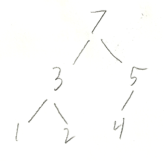 7
3 5
1 2 4